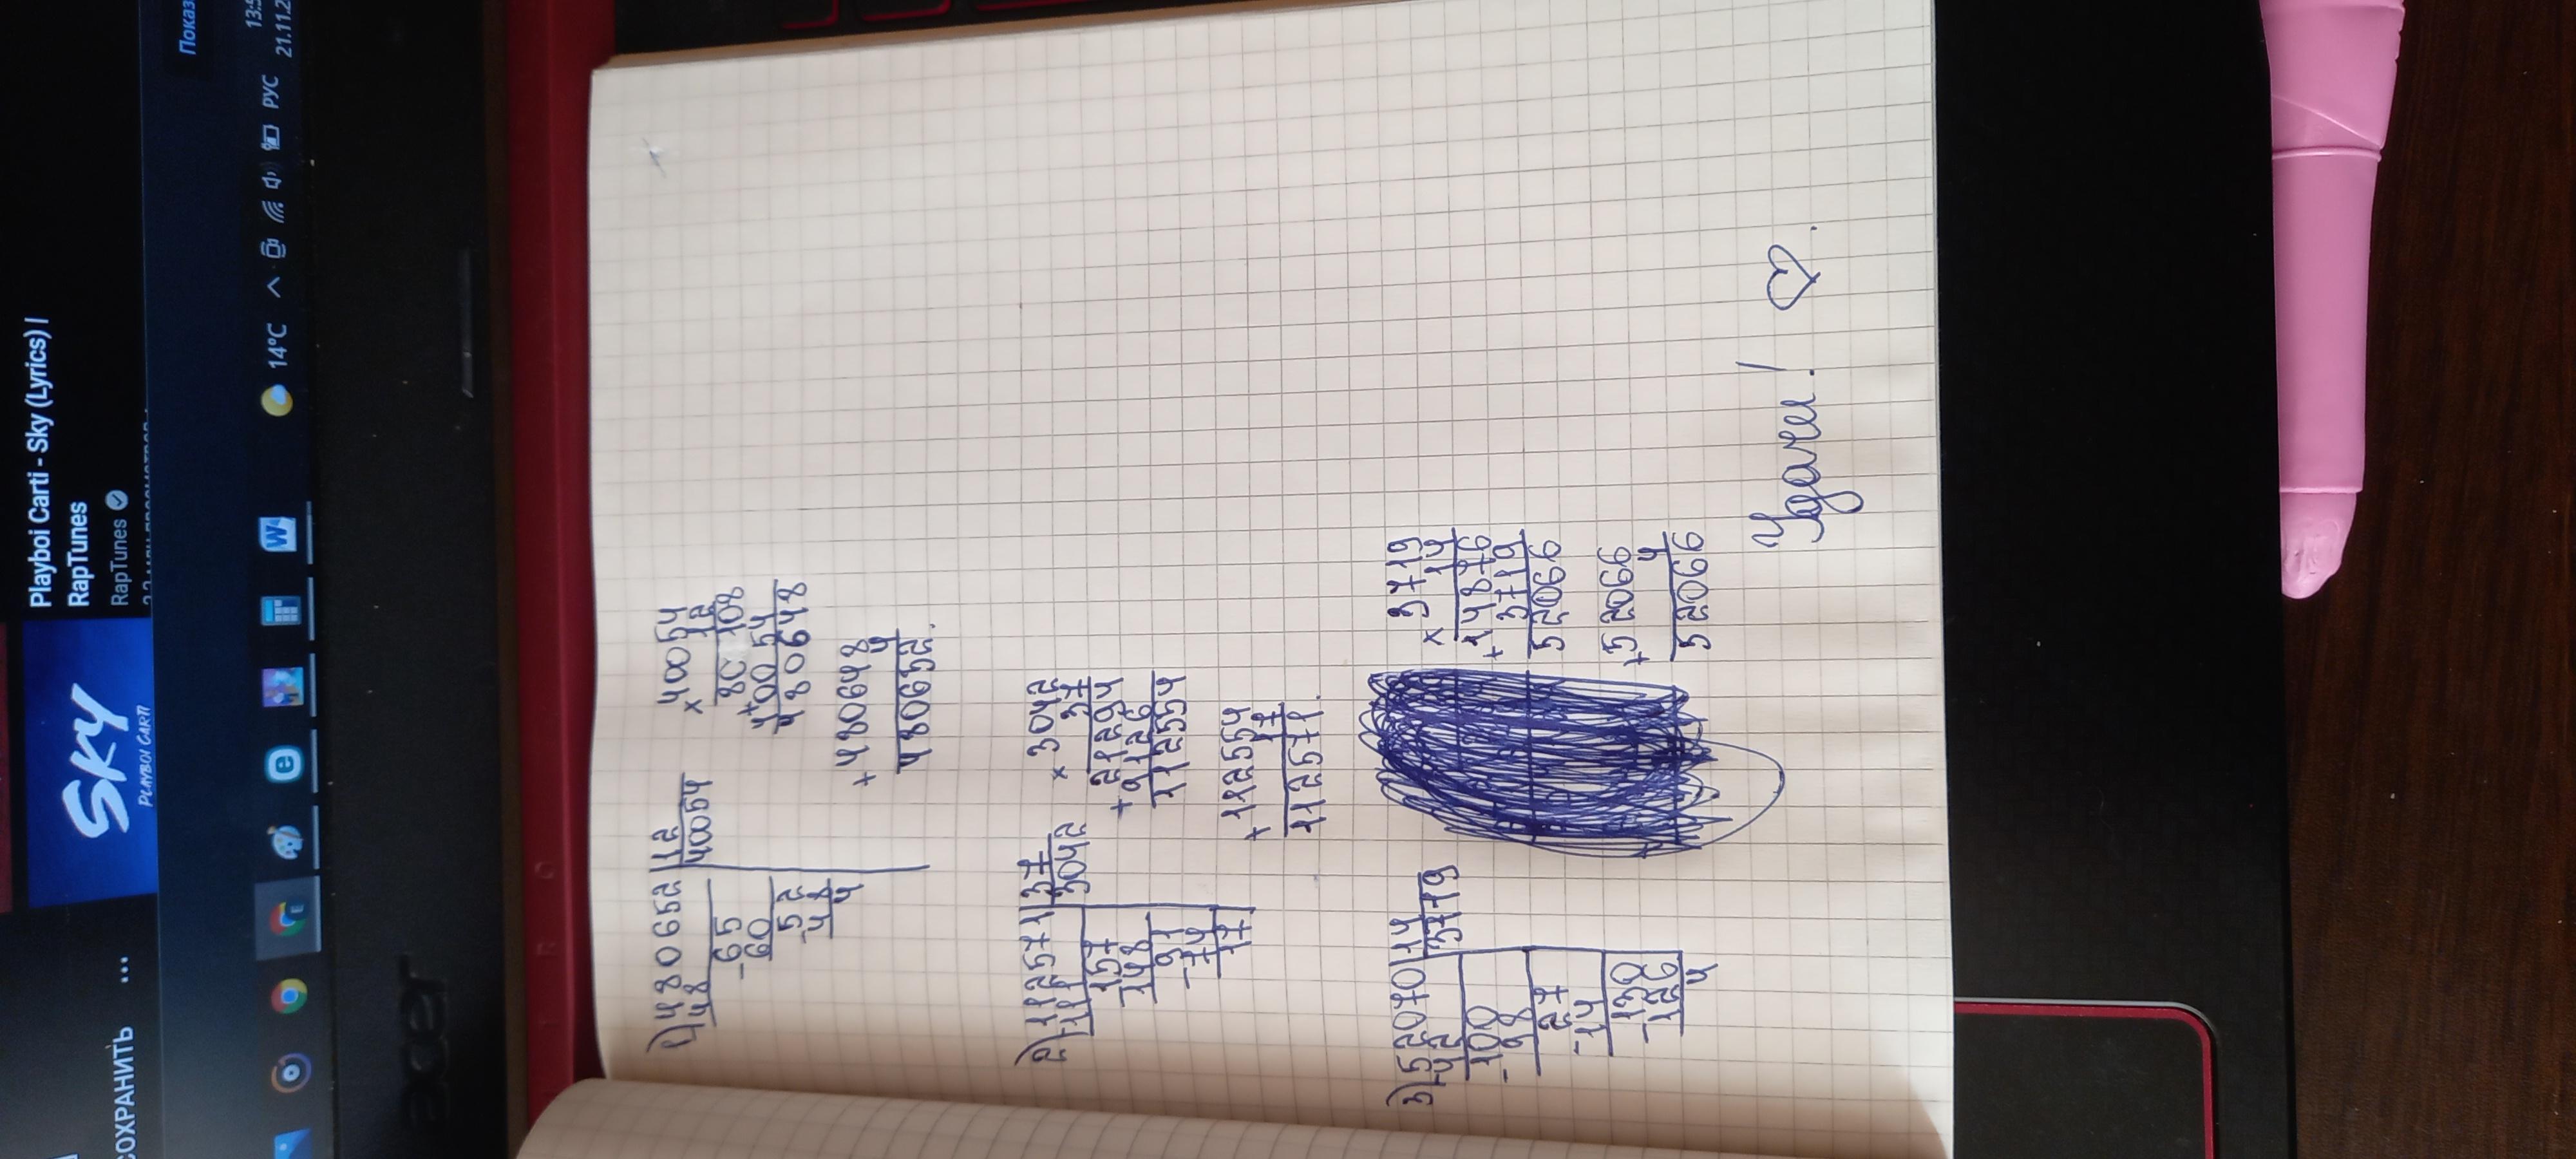 Показ
СОХРАНИТЬ ...
SKY
PLAYBOI CARTI
Playboi Carti - Sky (Lyrics) |
RapTunes
RapTunes
14°C
РУС
acer
1) 480652 | 12
48 | 40054
-65
60
-52
48
4
× 40054
12
80108
+
40054
480648
+ 480648
4
480652.
2) 112571 | 37
-111 | 3042
157
-148
91
-74
17
× 3042
37
21294
+ 9126
112554
+ 112554
17
112571.
3) 52070 | 14
-42 | 3719
-100
98
27
-14
130
-126
4
× 3719
14
14876
+ 3719
52066
+ 52066
4
52066
Удачи! ♡.